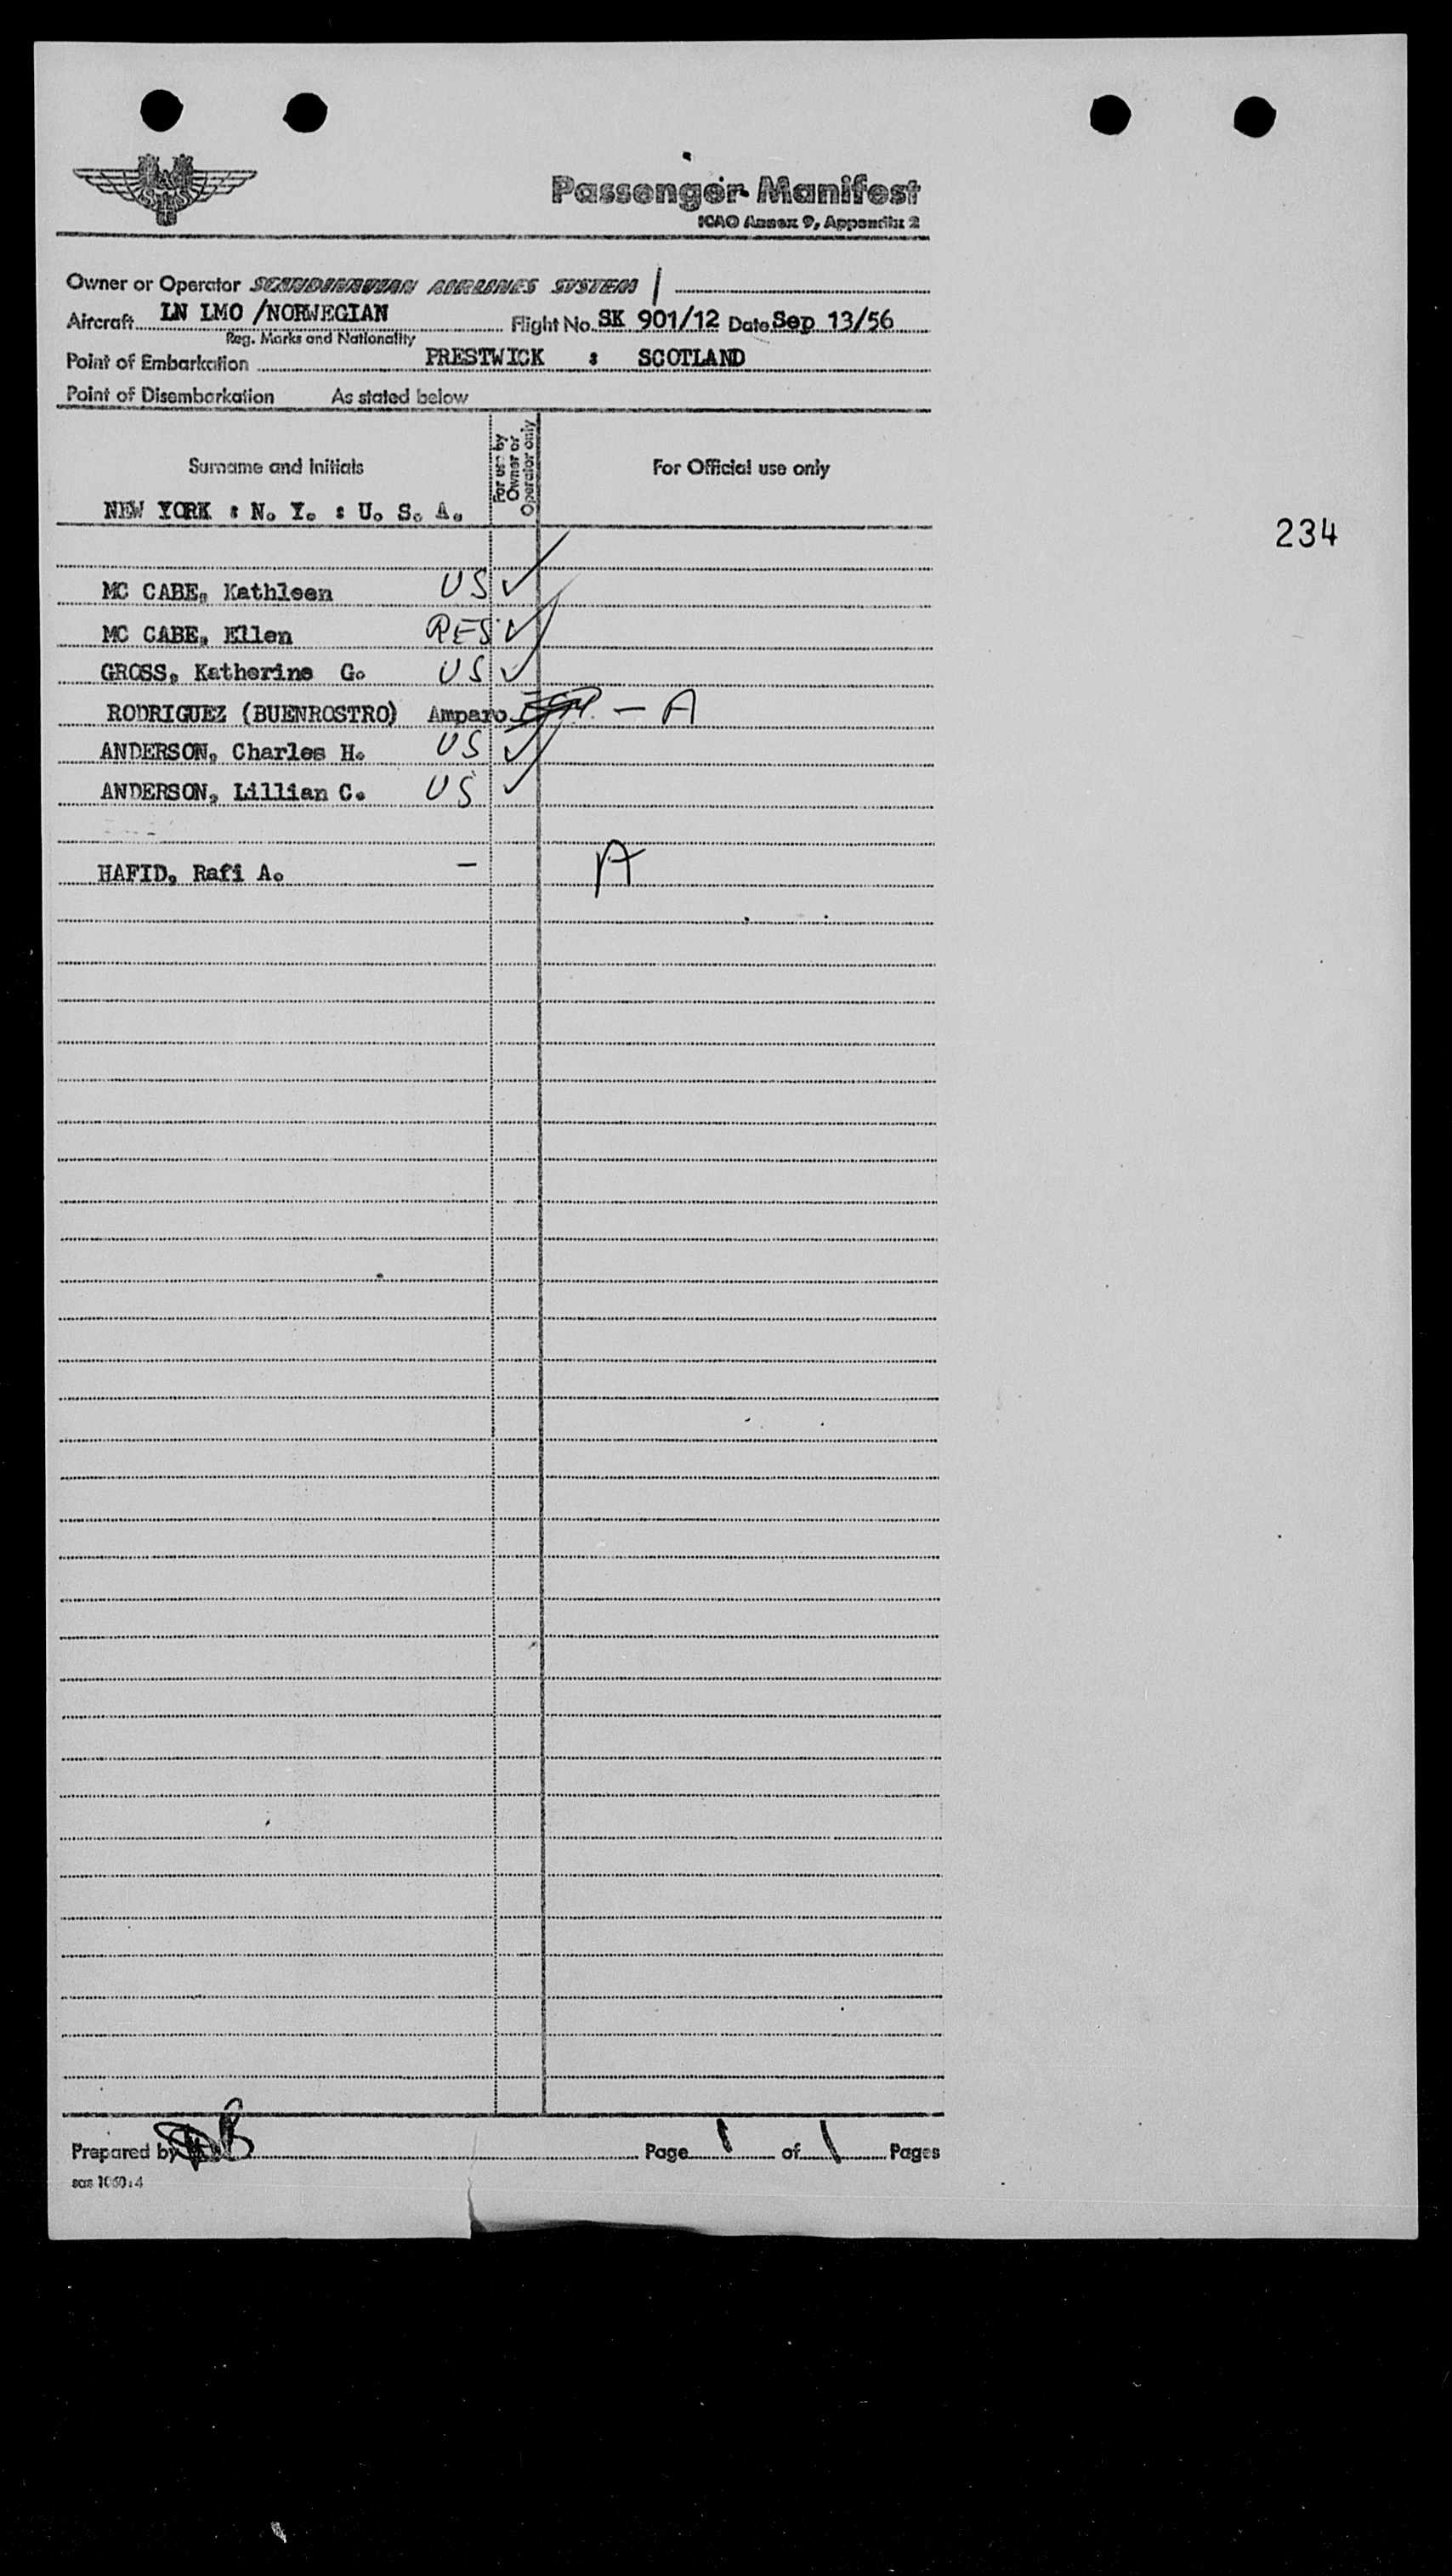 Passenger Manifest
ICAO Annex 9, Appendix 2
Owner or Operator SCANDINAVIAN AIRLINES SYSTEM /
Aircraft LN LMO /NORWEGIAN Flight No. SK 901/12 Date Sep 13/56
Reg. Marks and Nationality
Point of Embarkation PRESTWICK : SCOTLAND
Point of Disembarkation As stated below
Surname and initials
For use by Owner or Operator only
For Official use only
NEW YORK : N. Y. : U. S. A.
234
MC CABE, Kathleen US ✓
MC CABE, Ellen RES ✓
GROSS, Katherine G. US ✓
RODRIGUEZ (BUENROSTRO) Amparo - A
ANDERSON, Charles H. US ✓
ANDERSON, Lillian C. US ✓
HAFID, Rafi A. - A
Prepared by Page 1 of 1 Pages
sas 1060:4